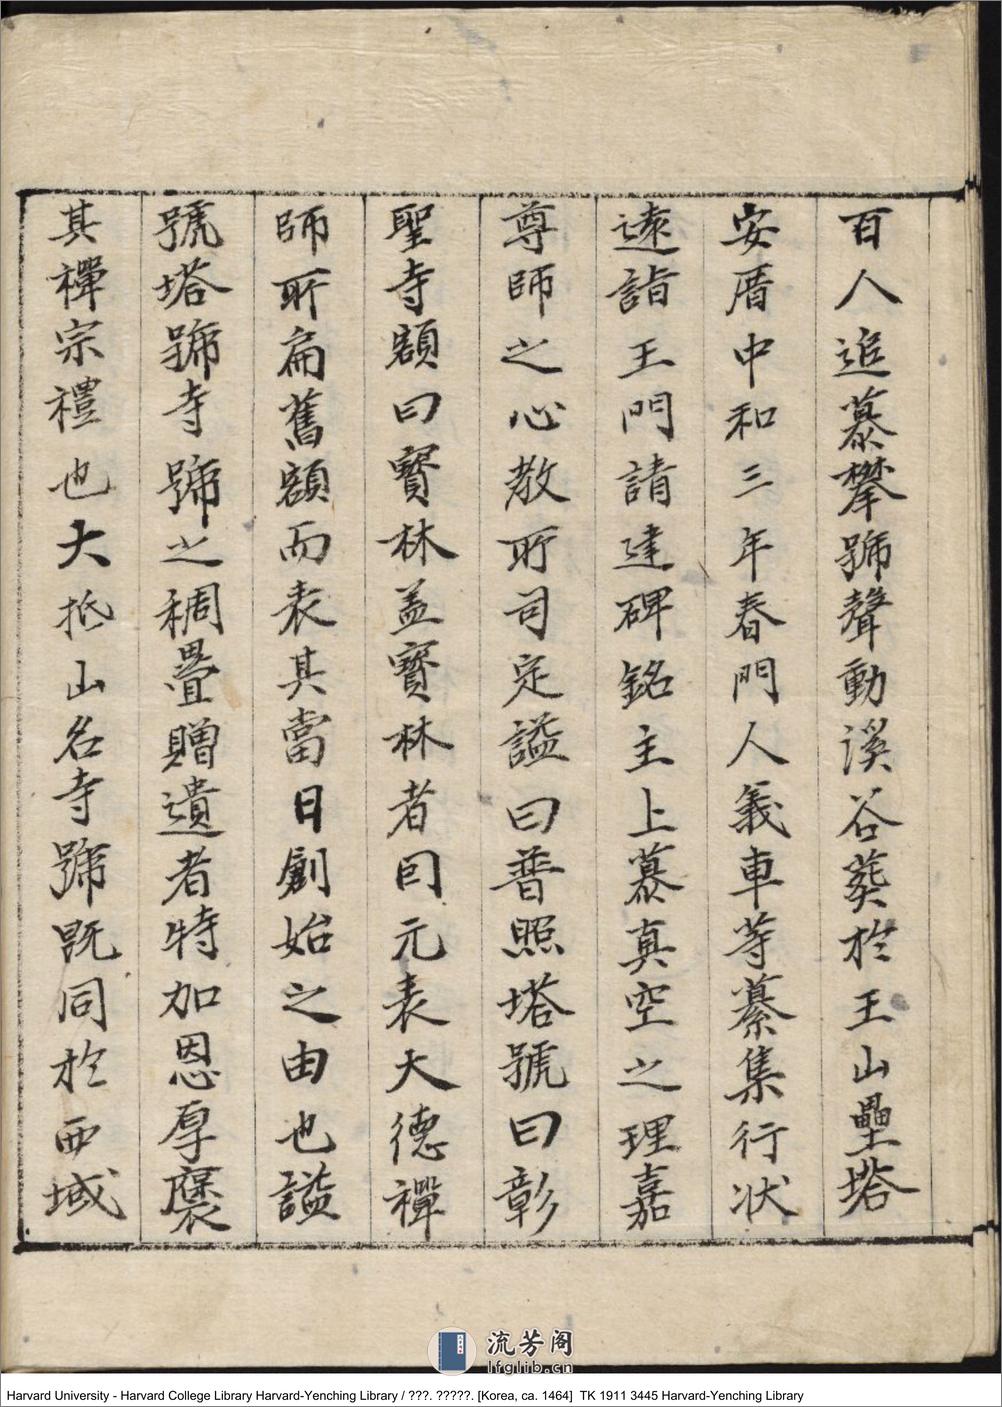 百人追慕攀號聲動溪谷葬於王山壘塔
安厝中和三年春門人義車等纂集行状
遠詣王門請建碑銘主上慕真空之理嘉
尊師之心教所司定諡曰普照塔號曰彰
聖寺額曰寳林盖寳林者因元表大德禪
師所扁舊額而表其當日創始之由也諡
號塔號寺號之稠疊贈遺者特加恩厚褒
其禪宗禮也大抵山名寺號既同於西域
流芳阁
lfglib.cn
Harvard University - Harvard College Library Harvard-Yenching Library / ???. ?????. [Korea, ca. 1464]  TK 1911 3445 Harvard-Yenching Library